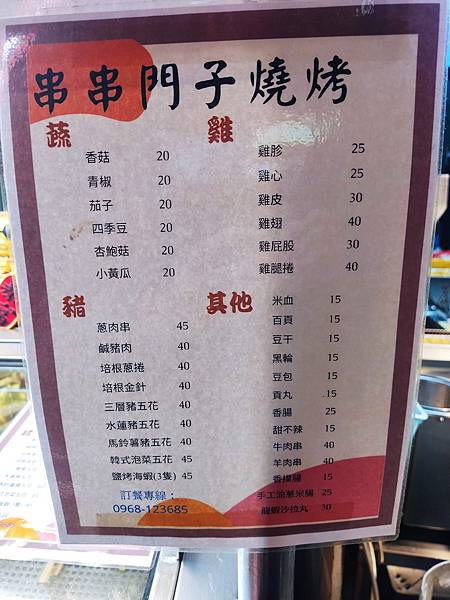 串串門子燒烤
蔬
香菇 20
青椒 20
茄子 20
四季豆 20
杏鮑菇 20
小黃瓜 20
雞
雞胗 25
雞心 25
雞皮 30
雞翅 40
雞屁股 30
雞腿捲 40
豬
蔥肉串 45
鹹豬肉 40
培根蔥捲 40
培根金針 40
三層豬五花 40
水蓮豬五花 40
馬鈴薯豬五花 40
韓式泡菜五花 45
鹽烤海蝦(3隻) 45
訂餐專線：
0968-123685
其他
米血 15
百頁 15
豆干 15
黑輪 15
豆包 15
貢丸 15
香腸 25
甜不辣 15
牛肉串 40
羊肉串 40
香檳腸 15
手工油蔥米腸 25
龍蝦沙拉丸 30